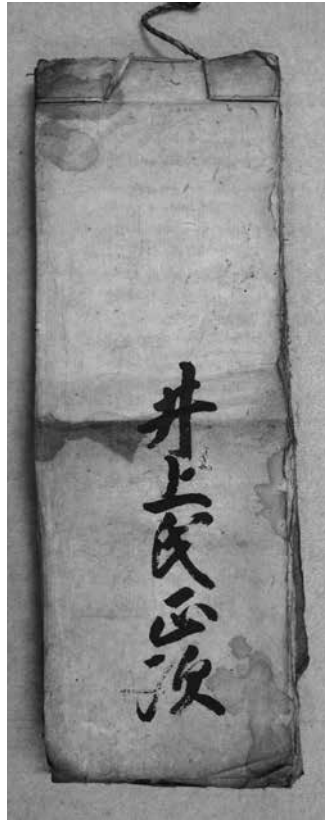 井上民正次